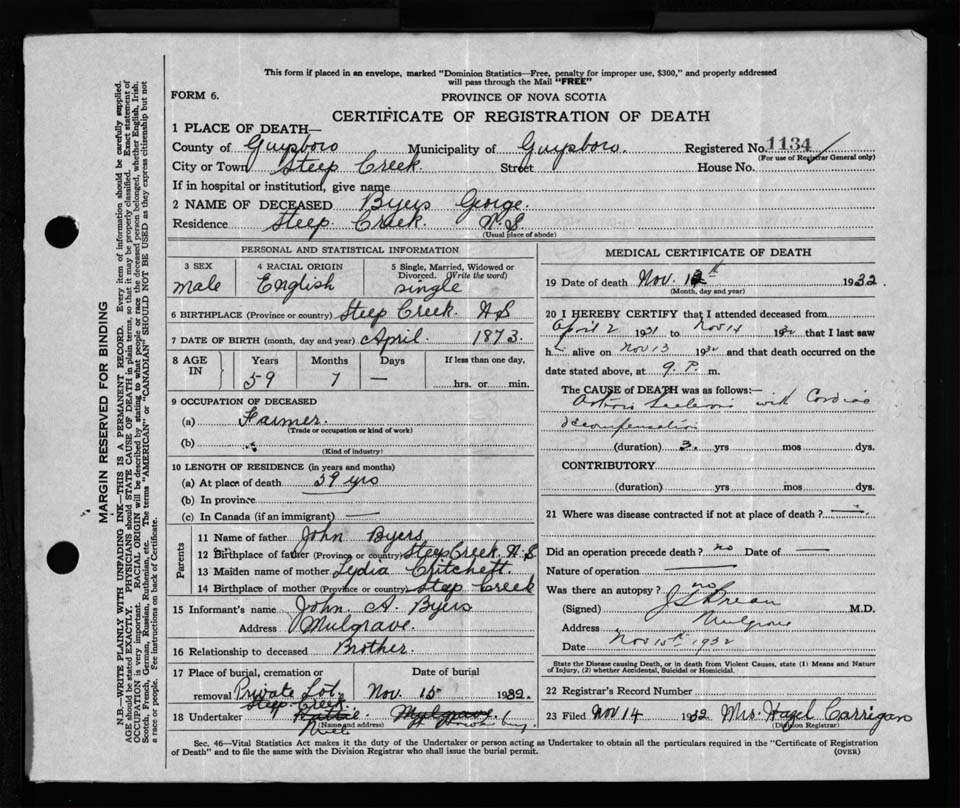 This form if placed in an envelope, marked "Dominion Statistics—Free, penalty for improper use, $300," and properly addressed
will pass through the Mail "FREE"
FORM 6.
PROVINCE OF NOVA SCOTIA
CERTIFICATE OF REGISTRATION OF DEATH
1 PLACE OF DEATH—
County of Guysboro Municipality of Guysboro. Registered No. 1134
(For use of Registrar General only)
City or Town Steep Creek. Street House No.
If in hospital or institution, give name
2 NAME OF DECEASED Byers George.
Residence Steep Creek. N.S.
(Usual place of abode)
PERSONAL AND STATISTICAL INFORMATION
3 SEX 4 RACIAL ORIGIN 5 Single, Married, Widowed or Divorced. (Write the word)
male English single
6 BIRTHPLACE (Province or country) Steep Creek. N S
7 DATE OF BIRTH (month, day and year) April. 1873.
8 AGE IN Years Months Days If less than one day,
59 7 — hrs. or min.
9 OCCUPATION OF DECEASED
(a) Farmer.
(Trade or occupation or kind of work)
(b)
(Kind of industry)
10 LENGTH OF RESIDENCE (in years and months)
(a) At place of death 59 yrs
(b) In province
(c) In Canada (if an immigrant) —
Parents
11 Name of father John Byers
12 Birthplace of father (Province or country) Steep Creek N.S
13 Maiden name of mother Lydia Critchett.
14 Birthplace of mother (Province or country) Steep Creek
15 Informant's name John A. Byers
Address Mulgrave.
16 Relationship to deceased Brother.
17 Place of burial, cremation or removal Private Lot, Steep Creek.
Date of burial
Nov. 15 1932.
18 Undertaker Mulgrave.
(Name and address)
MEDICAL CERTIFICATE OF DEATH
19 Date of death Nov. 1932
(Month, day and year)
20 I HEREBY CERTIFY that I attended deceased from
April 2 1931 to Nov 14 1932 that I last saw
h alive on Nov 13 1932 and that death occurred on the
date stated above, at 9. P. m.
The CAUSE of DEATH was as follows:—
with Cardiac
decompensation
(duration) 3. yrs mos dys.
CONTRIBUTORY
(duration) yrs mos dys.
21 Where was disease contracted if not at place of death? —
Did an operation precede death? no Date of —
Nature of operation —
Was there an autopsy? no
(Signed) M.D.
Address Mulgrave
Date Nov 15th 1932
State the Disease causing Death, or in death from Violent Causes, state (1) Means and Nature
of Injury, (2) whether Accidental, Suicidal or Homicidal.
22 Registrar's Record Number
23 Filed Nov 14 1932 Mrs. Hazel Carrigan
(Division Registrar)
Sec. 46—Vital Statistics Act makes it the duty of the Undertaker or person acting as Undertaker to obtain all the particulars required in the "Certificate of Registration
of Death" and to file the same with the Division Registrar who shall issue the burial permit.
(OVER)
MARGIN RESERVED FOR BINDING
N.B.—WRITE PLAINLY WITH UNFADING INK—THIS IS A PERMANENT RECORD. Every item of information should be carefully supplied.
AGE should be stated EXACTLY. PHYSICIANS should STATE CAUSE OF DEATH in plain terms, so that it may be properly classified. Exact statement of
OCCUPATION is very important. RACIAL ORIGIN will be described by stating to what people or race the deceased person belonged, whether English, Irish,
Scotch, French, German, Russian, Ruthenian, etc. The terms "AMERICAN" or "CANADIAN" SHOULD NOT BE USED as they express citizenship but not
a race or people. See instructions on back of Certificate.